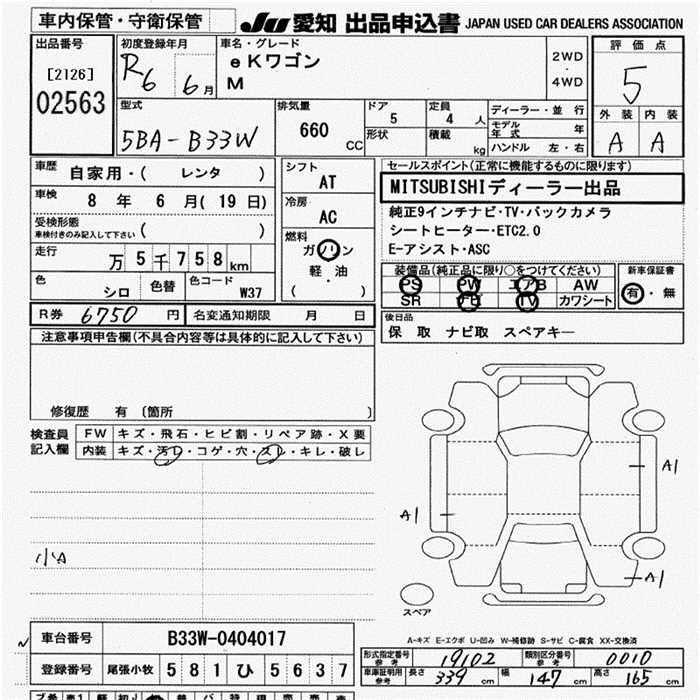 車内保管・守衛保管
JU 愛知 出品申込書 JAPAN USED CAR DEALERS ASSOCIATION
出品番号
[2126]
02563
初度登録年月
R6 6月
車名・グレード
eKワゴン
M
2WD
・
4WD
評価点
5
外装 内装
A A
型式
5BA-B33W
排気量
660 CC
ドア
5
形状
定員
4 人
積載
kg
ディーラー・並行
モデル年式 年
ハンドル 左・右
車歴 自家用・( レンタ )
車検 8年 6月(19日)
受検形態
車検付きのみ記入して下さい ( )
走行 万5千758km
色 シロ 色替 色コード W37
シフト
AT
冷房
AC
燃料
ガソリン
軽・油
( )
セールスポイント(正常に機能するものに限ります)
MITSUBISHIディーラー出品
純正9インチナビ・TV・バックカメラ
シートヒーター・ETC2.0
E-アシスト・ASC
装備品(純正品に限り○をつけてください)
PS PW エアB AW
SR ナビ TV カワシート
新車保証書
有・無
R券 6750円 名変通知期限 月 日
後日品
保 取 ナビ取 スペアキー
注意事項申告欄(不具合内容等は具体的に記入して下さい)
修復歴 有 [箇所 ]
検査員
記入欄
FW キズ・飛石・ヒビ割・リペア跡・X要
内装 キズ・汚レ・コゲ・穴・スレ・キレ・破レ
小A
A1
A1
A1
スペア
A-キズ E-エクボ U-凹み W-補修跡 S-サビ C-腐食 XX-交換済
車台番号 B33W-0404017
登録番号 尾張小牧 581ひ5637
型式指定番号
参考 19102
類別区分番号
参考 0010
車庫証明用
参考 長さ 339 幅 147 高さ 165
cm cm cm